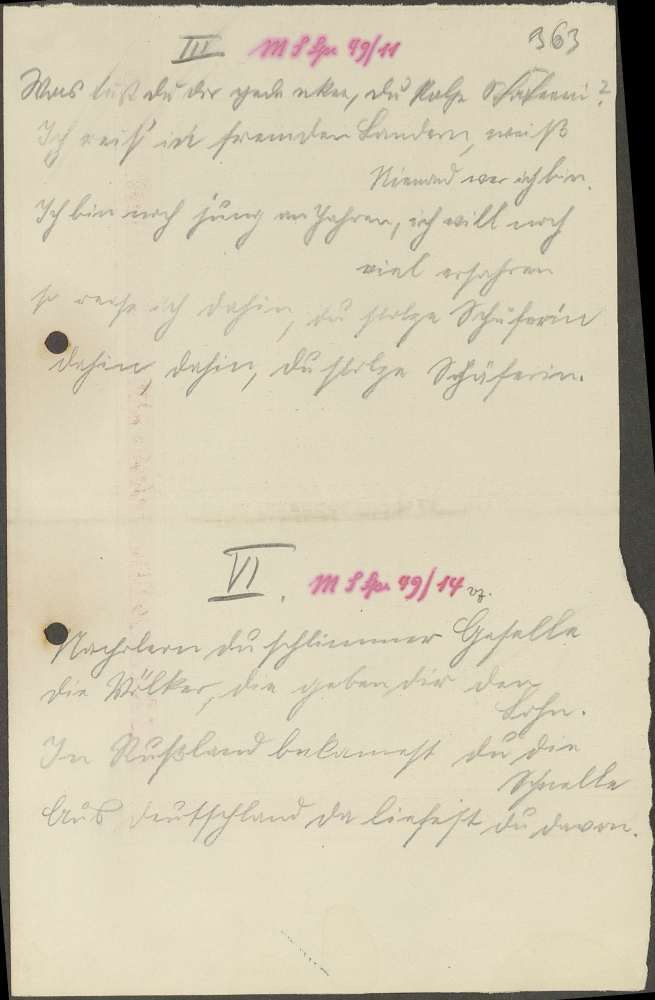 363
III M S Spr 49/11
Was tust du dir gedenken, du stolze Schäferin?
Ich reis' in fremden Landern, weiß
Niemand wer ich bin.
Ich bin noch jung an Jahren, ich will noch
viel erfahren
so reise ich dahin, du stolze Schäferin
dahin dahin, du stolze Schäferin.
VI. M S Spr 49/14
Napoleon du schlimmer Geselle
die Völker, die geben dir den
Lohn.
In Rußland bekamest du die
Schnelle
Aus Deutschland da liefest du davon.